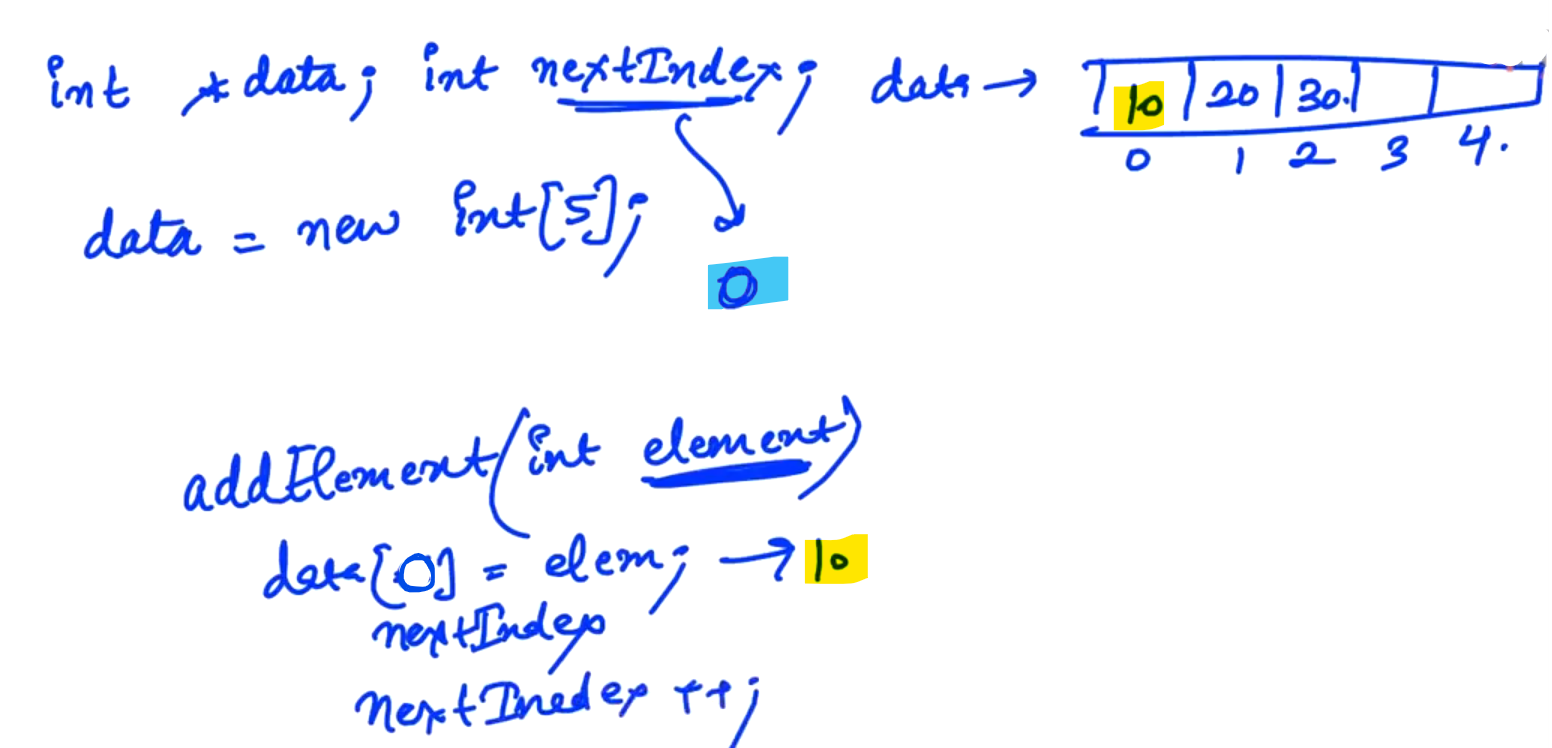 int *data; int nextIndex; data →
10 20 30.
0 1 2 3 4.
data = new int[5];
0
addElement(int element)
data[0] = elem; → 10
nextIndex
nextInedex ++;